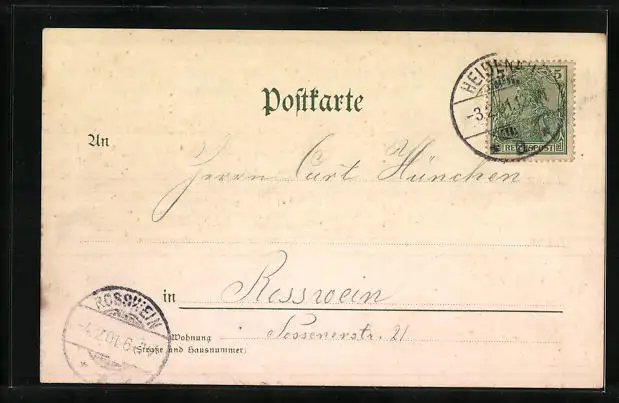 Postkarte
HEIDENAU
-3.2.01.
5
REICHSPOST
An
Herrn Curt München
in Rosswein
ROSSWEIN
-4.2.01.9-
Wohnung
(Straße und Hausnummer)
Nossenerstr. 21